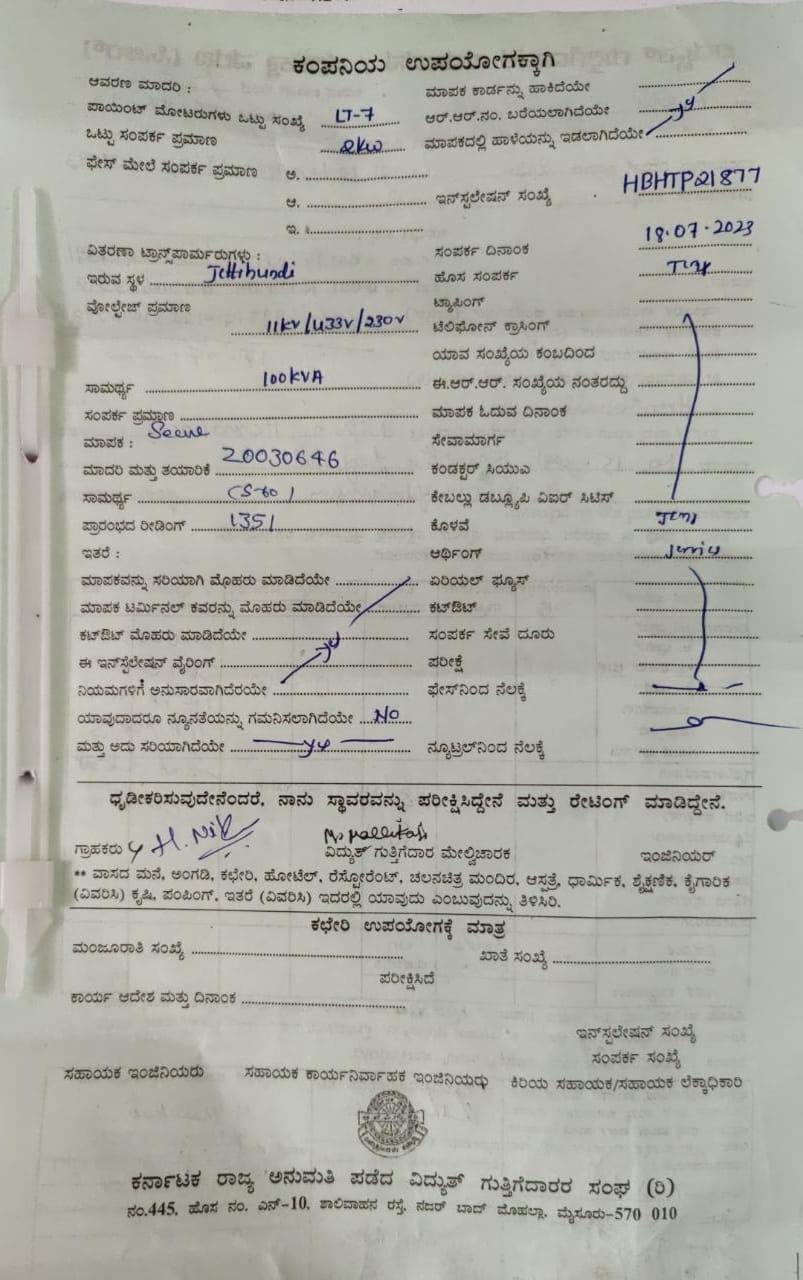 ಕಂಪನಿಯ ಉಪಯೋಗಕ್ಕಾಗಿ
ಆವರಣ ಮಾದರಿ : ಮಾಪಕ ಕಾರ್ಡನ್ನು ಹಾಕಿದೆಯೇ
ಪಾಯಿಂಟ್ ಮೋಟರುಗಳು ಒಟ್ಟು ಸಂಖ್ಯೆ LT-7 ಆರ್.ಆರ್.ನಂ. ಬರೆಯಲಾಗಿದೆಯೇ
ಒಟ್ಟು ಸಂಪರ್ಕ ಪ್ರಮಾಣ 2kw ಮಾಪಕದಲ್ಲಿ ಹಾಳೆಯನ್ನು ಇಡಲಾಗಿದೆಯೇ
ಫೇಸ್ ಮೇಲೆ ಸಂಪರ್ಕ ಪ್ರಮಾಣ ಅ.
ಆ. ಇನ್‌ಸ್ಪಲೇಷನ್ ಸಂಖ್ಯೆ HBHTP21877
ಇ.
ವಿತರಣಾ ಟ್ರಾನ್ಸ್‌ಪಾರ್ಮರುಗಳು : ಸಂಪರ್ಕ ದಿನಾಂಕ 18.07.2023
ಇರುವ ಸ್ಥಳ Jettihundi ಹೊಸ ಸಂಪರ್ಕ
ವೋಲ್ಟೇಜ್ ಪ್ರಮಾಣ ಟ್ಯಾಪಿಂಗ್
11kv/433v/230v ಟೆಲಿಫೋನ್ ಕ್ರಾಸಿಂಗ್
ಯಾವ ಸಂಖ್ಯೆಯ ಕಂಬದಿಂದ
ಸಾಮರ್ಥ್ಯ 100KVA ಈ.ಆರ್.ಆರ್. ಸಂಖ್ಯೆಯ ನಂತರದ್ದು
ಸಂಪರ್ಕ ಪ್ರಮಾಣ ಮಾಪಕ ಓದುವ ದಿನಾಂಕ
ಮಾಪಕ : ಸೇವಾಮಾರ್ಗ
ಮಾದರಿ ಮತ್ತು ತಯಾರಿಕೆ 20030646 ಕಂಡಕ್ಟರ್ ಸಿಯುಎ
ಸಾಮರ್ಥ್ಯ ಕೇಬಲ್ಲು ಡಬ್ಲ್ಯೂಪಿ ವಿಐರ್ ಸಿಟಿಸ್
ಪ್ರಾರಂಭದ ರೀಡಿಂಗ್ 1351 ಕೊಳವೆ
ಇತರೆ : ಆರ್ಥಿಂಗ್
ಮಾಪಕವನ್ನು ಸರಿಯಾಗಿ ಮೊಹರು ಮಾಡಿದೆಯೇ ಏರಿಯಲ್ ಫ್ಯೂಸ್
ಮಾಪಕ ಟರ್ಮಿನಲ್ ಕವರನ್ನು ಮೊಹರು ಮಾಡಿದೆಯೇ ಕಟ್‌ಔಟ್
ಕಟ್‌ಔಟ್ ಮೊಹರು ಮಾಡಿದೆಯೇ ಸಂಪರ್ಕ ಸೇವೆ ದೂರು
ಈ ಇನ್‌ಸ್ಪೆಲೇಷನ್ ವೈರಿಂಗ್ ಪರೀಕ್ಷೆ
ನಿಯಮಗಳಿಗೆ ಅನುಸಾರವಾಗಿದೆರಯೇ ಫೇಸ್‌ನಿಂದ ನೆಲಕ್ಕೆ
ಯಾವುದಾದರೂ ನ್ಯೂನತೆಯನ್ನು ಗಮನಿಸಲಾಗಿದೆಯೇ No
ಮತ್ತು ಅದು ಸರಿಯಾಗಿದೆಯೇ ನ್ಯೂಟ್ರಲ್‌ನಿಂದ ನೆಲಕ್ಕೆ
ಧೃಡೀಕರಿಸುವುದೇನೆಂದರೆ, ನಾನು ಸ್ಥಾವರವನ್ನು ಪರೀಕ್ಷಿಸಿದ್ದೇನೆ ಮತ್ತು ರೇಟಿಂಗ್ ಮಾಡಿದ್ದೇನೆ.
ಗ್ರಾಹಕರು ವಿದ್ಯುತ್ ಗುತ್ತಿಗೆದಾರ ಮೇಲ್ವಿಚಾರಕ ಇಂಜಿನಿಯರ್
** ವಾಸದ ಮನೆ, ಅಂಗಡಿ, ಕಛೇರಿ, ಹೋಟೆಲ್, ರೆಸ್ಟೋರೆಂಟ್, ಚಲನಚಿತ್ರ ಮಂದಿರ, ಆಸ್ಪತ್ರೆ, ಧಾರ್ಮಿಕ, ಶೈಕ್ಷಣಿಕ, ಕೈಗಾರಿಕ
(ವಿವರಿಸಿ) ಕೃಷಿ, ಪಂಪಿಂಗ್, ಇತರೆ (ವಿವರಿಸಿ) ಇದರಲ್ಲಿ ಯಾವುದು ಎಂಬುವುದನ್ನು ತಿಳಿಸಿರಿ.
ಕಛೇರಿ ಉಪಯೋಗಕ್ಕೆ ಮಾತ್ರ
ಮಂಜೂರಾತಿ ಸಂಖ್ಯೆ ಖಾತೆ ಸಂಖ್ಯೆ
ಪರೀಕ್ಷಿಸಿದೆ
ಕಾರ್ಯ ಆದೇಶ ಮತ್ತು ದಿನಾಂಕ
ಇನ್‌ಸ್ಪಲೇಷನ್ ಸಂಖ್ಯೆ
ಸಂಪರ್ಕ ಸಂಖ್ಯೆ
ಸಹಾಯಕ ಇಂಜಿನಿಯರು ಸಹಾಯಕ ಕಾರ್ಯನಿರ್ವಾಹಕ ಇಂಜಿನಿಯರು ಕಿರಿಯ ಸಹಾಯಕ/ಸಹಾಯಕ ಲೆಕ್ಕಾಧಿಕಾರಿ
ಕರ್ನಾಟಕ ರಾಜ್ಯ ಅನುಮತಿ ಪಡೆದ ವಿದ್ಯುತ್ ಗುತ್ತಿಗೆದಾರರ ಸಂಘ (ರಿ)
ನಂ.445, ಹೊಸ ನಂ. ಎನ್-10, ಶಾಲಿವಾಹನ ರಸ್ತೆ, ನಜರ್ ಬಾದ್ ಮೊಹಲ್ಲಾ, ಮೈಸೂರು-570 010